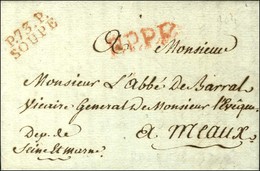 P.73.P.
SOUPE
P.P.P.P.
A Monsieur
Monsieur L'Abbé de Barral
Vicaire General de Monsieur l'Evêque
Dep. de
Seine et marne
a Meaux